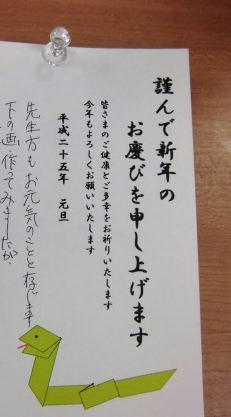 謹んで新年の
お慶びを申し上げます
皆さまのご健康とご多幸をお祈りいたします
今年もよろしくお願いいたします
平成二十五年　元旦
先生方もお元気のことと存じます
下の画、作ってみましたが、